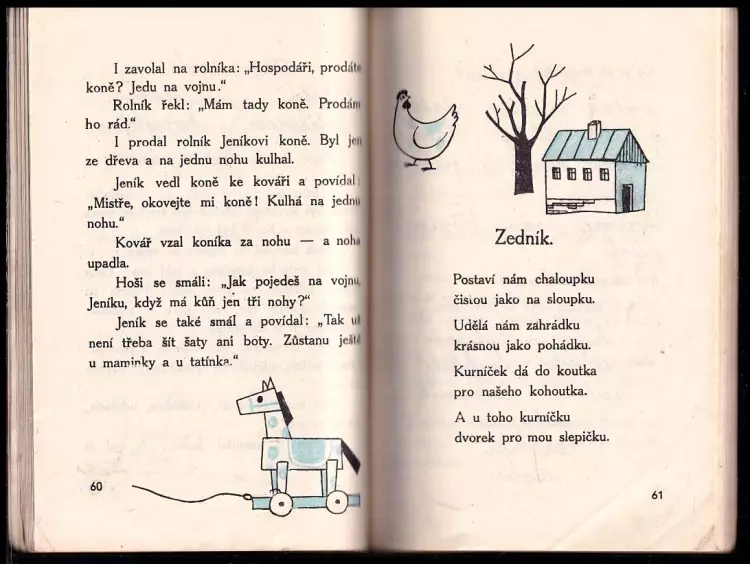 I zavolal na rolníka: „Hospodáři, prodáte
koně? Jedu na vojnu.“
Rolník řekl: „Mám tady koně. Prodám
ho rád.“
I prodal rolník Jeníkovi koně. Byl jen
ze dřeva a na jednu nohu kulhal.
Jeník vedl koně ke kováři a povídal:
„Mistře, okovejte mi koně! Kulhá na jednu
nohu.“
Kovář vzal koníka za nohu — a noha
upadla.
Hoši se smáli: „Jak pojedeš na vojnu,
Jeníku, když má kůň jen tři nohy?“
Jeník se také smál a povídal: „Tak už
není třeba šít šaty ani boty. Zůstanu ještě
u maminky a u tatínka.“
60
Zedník.
Postaví nám chaloupku
čistou jako na sloupku.
Udělá nám zahrádku
krásnou jako pohádku.
Kurníček dá do koutka
pro našeho kohoutka.
A u toho kurníčku
dvorek pro mou slepičku.
61